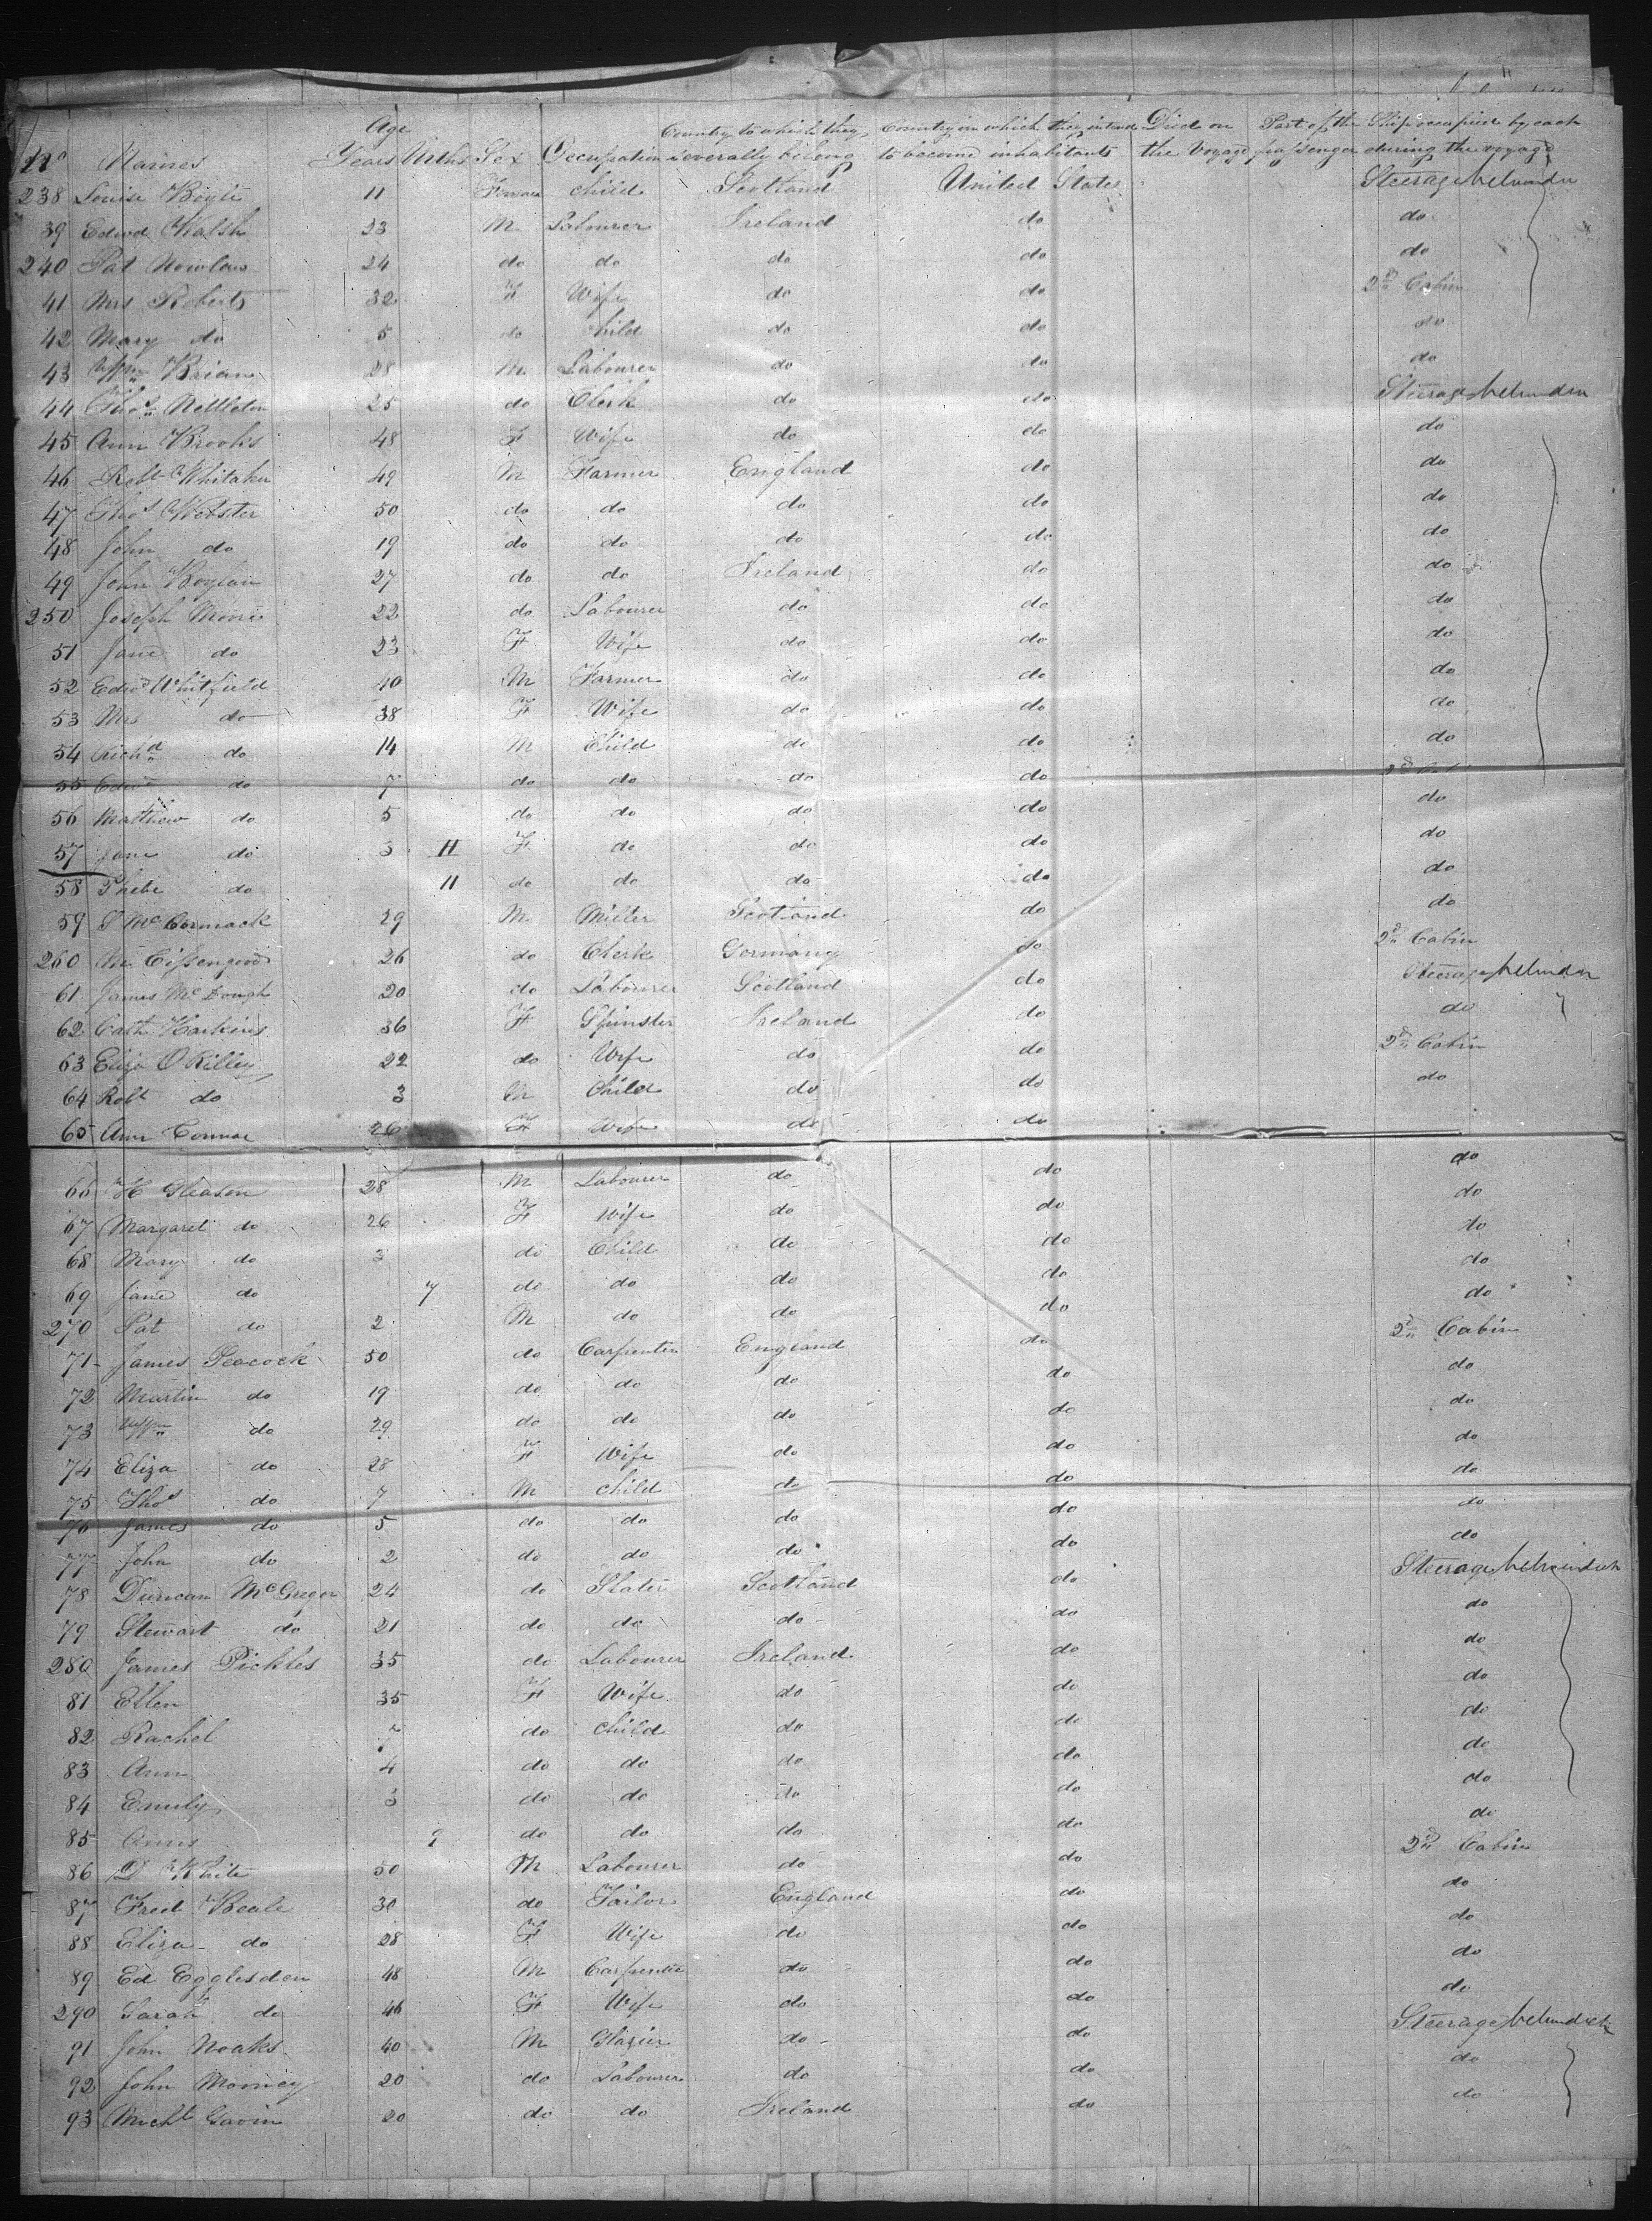 Age Country to which they Country in which they intend Died on Part of the Ship occupied by each
No Names Years Mths Sex Occupation severally belong to become inhabitants the Voyage passenger during the voyage
238 Louise Boyle 11 Female child Scotland United States Steerage
39 Edwd Walsh 23 M Labourer Ireland do do
240 Pat Nowlan 24 do do do do do
41 Mrs Roberts 32 F Wife do do 2d Cabin
42 Mary do 5 do child do do do
43 Wm Brian 28 M Labourer do do do
44 Thos Nettleton 25 do Clerk do do Steerage
45 Ann Brooks 48 F Wife do do do
46 Robt Whitaker 49 M Farmer England do do
47 Thos Webster 50 do do do do do
48 John do 19 do do do do do
49 John Boylan 27 do do Ireland do do
250 Joseph 22 do Labourer do do do
51 Jane do 23 F Wife do do do
52 Edwd Whitfield 40 M Farmer do do do
53 Mrs do 38 F Wife do do do
54 Richd do 14 M Child do do do
55 Edwd do 7 do do do do 2d
56 Matthew do 5 do do do do do
57 Jane do 3 11 F do do do do
58 Phebe do 11 do do do do do
59 S McCormack 29 M Miller Scotland do do
260 26 do Clerk Germany do 2d Cabin
61 James McDough 20 do Labourer Scotland do Steerage
62 Cath Harkins 36 F Spinster Ireland do do
63 Eliza O'Rilley 22 do Wife do do 2d Cabin
64 Robt do 3 M Child do do do
65 Ann Connor 26 F Wife do do
66 H Gleason 28 M Labourer do do do
67 Margaret do 26 F Wife do do do
68 Mary do 3 do Child do do do
69 Jane do 7 do do do do do
270 Pat do 2 M do do do do
71 James Peacock 50 do Carpenter England do 2d Cabin
72 Martin do 19 do do do do do
73 Wm do 29 do do do do do
74 Eliza do 28 F Wife do do do
75 Thos do 7 M child do do do
76 James do 5 do do do do do
77 John do 2 do do do do do
78 Duncan McGregor 24 do Slater Scotland do Steerage
79 Stewart do 21 do do do do do
280 James Pickles 35 do Labourer Ireland do do
81 Ellen 35 F Wife do do do
82 Rachel 7 do child do do do
83 Ann 4 do do do do do
84 Emily 3 do do do do do
85 9 do do do do do
86 D White 50 M Labourer do do 2d Cabin
87 Fred Beale 30 do Tailor England do do
88 Eliza do 28 F Wife do do do
89 Ed Egglesden 48 M Carpenter do do do
290 Sarah do 46 F Wife do do do
91 John Noaks 40 M Glazier do do Steerage
92 John 20 do Labourer do do do
93 Michl Gavin 20 do do Ireland do do